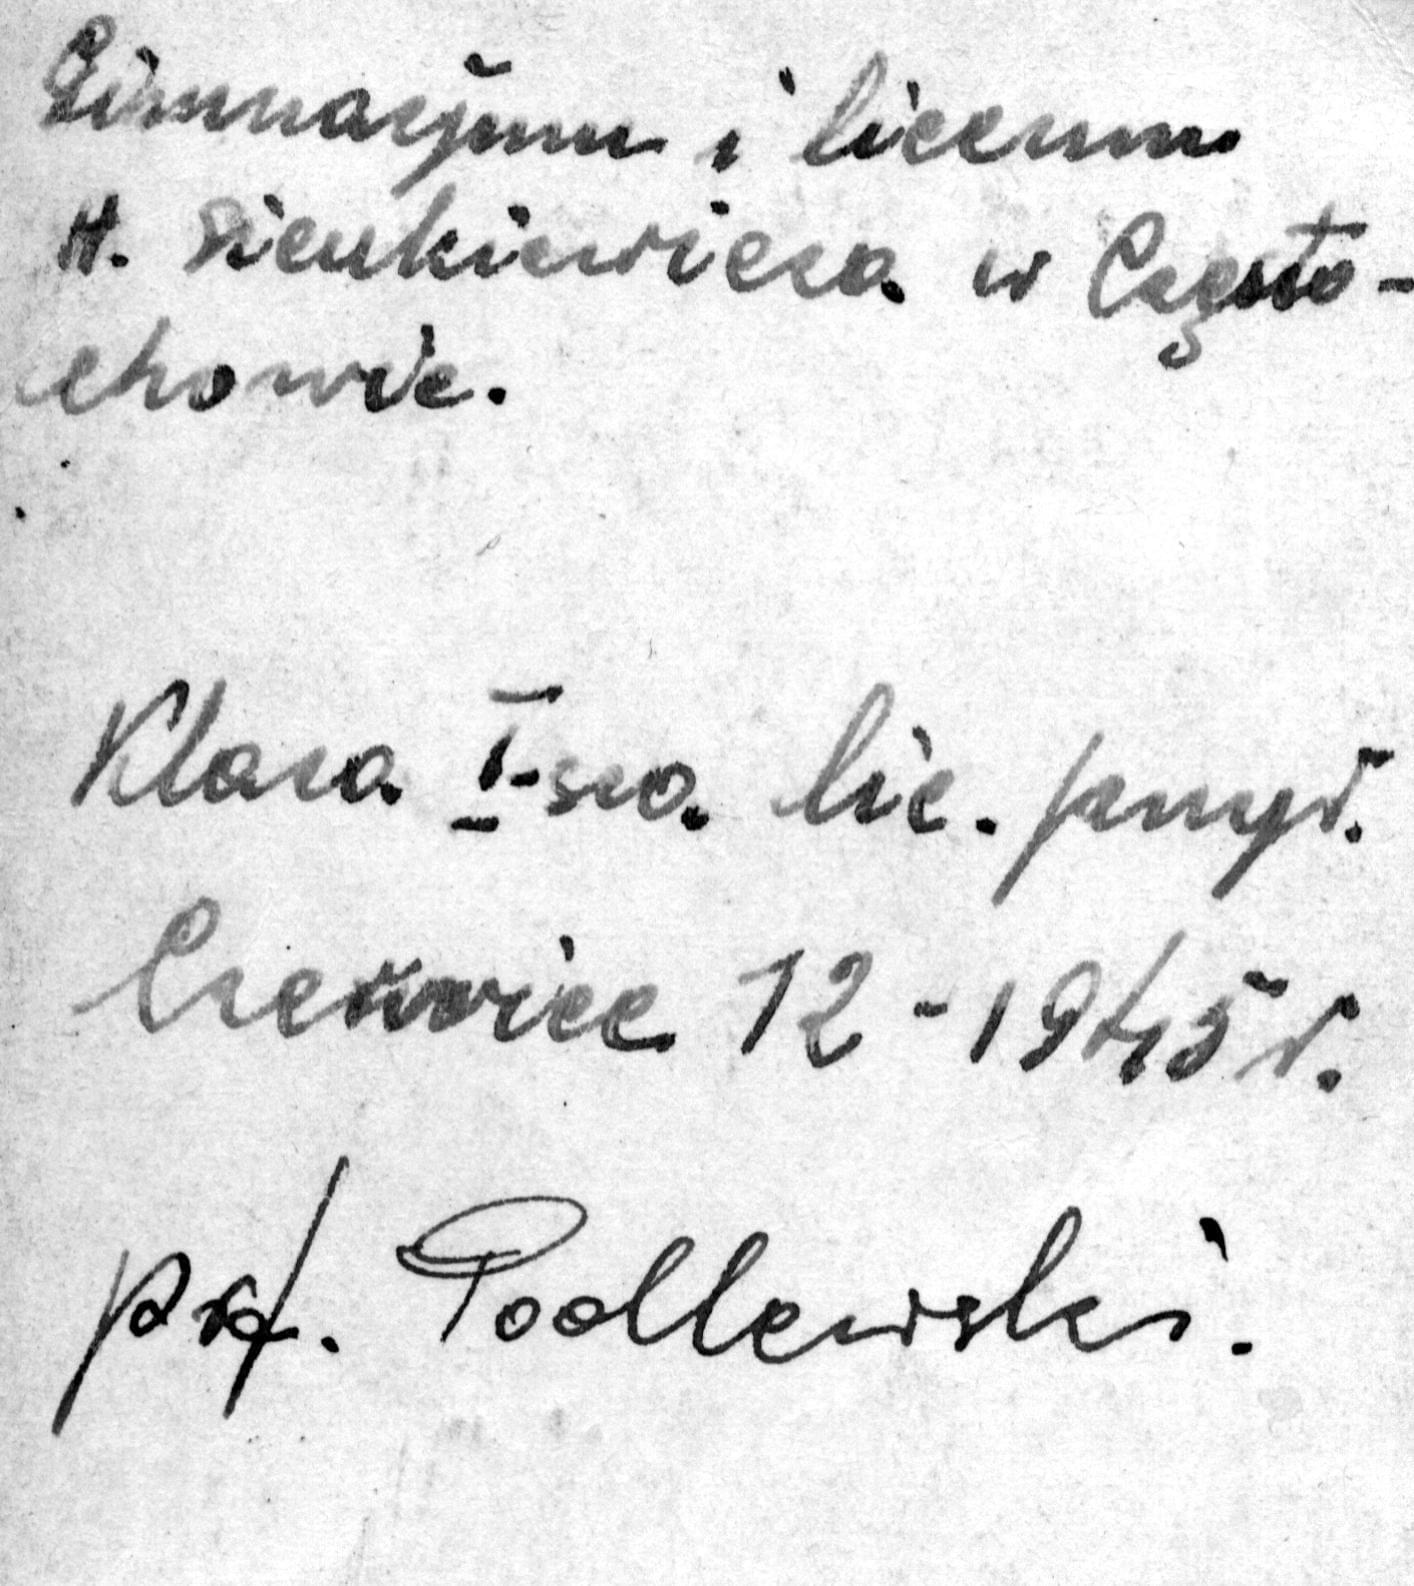 Gimnazjum i liceum
H. Sienkiewicza w Często-
chowie.
Klasa I-sza lic. przyr.
Czerwiec 12-1945 r.
prof. Podlewski.